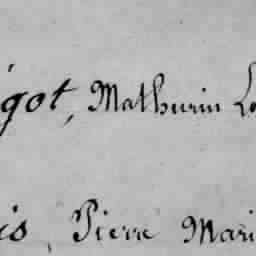 igot, Mathurin Lo
is, Pierre Mari